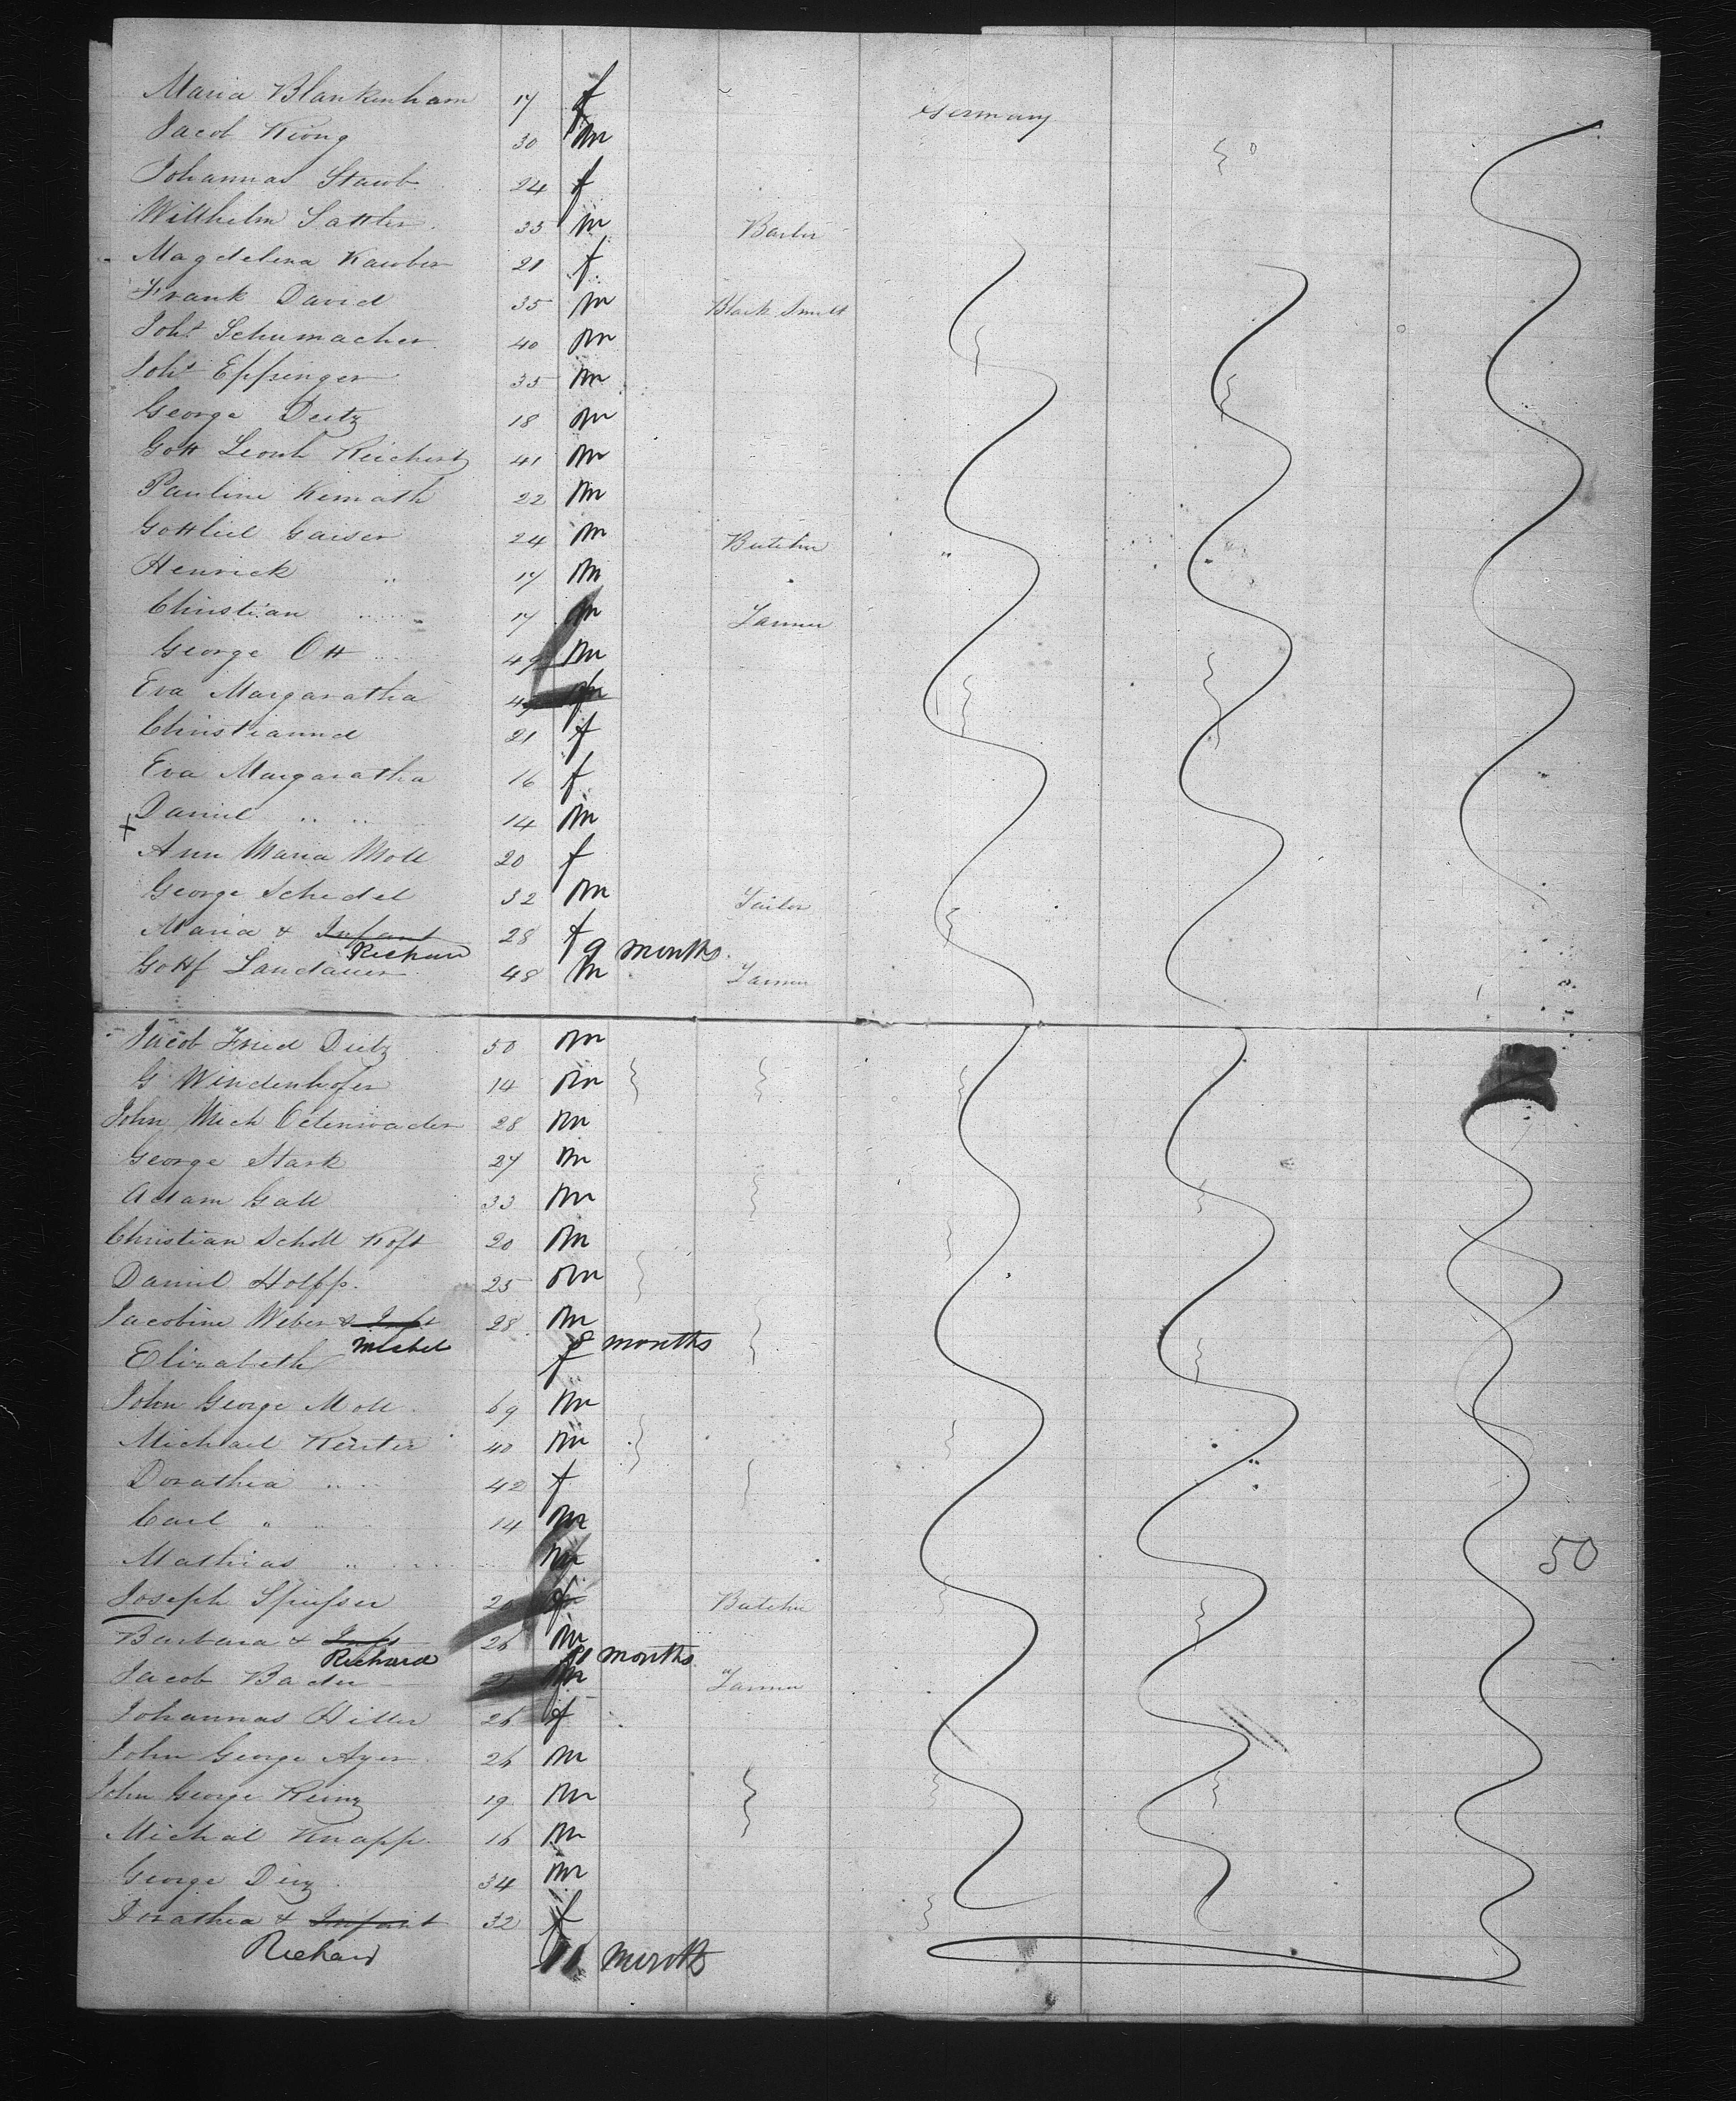 Maria Blankenham 17 f Germany
Jacob Kiong 30 m
Johannas Staub 24 f
Willhelm Sattler 33 m Barber
Magdelena Kauber 21 f
Frank David 35 m Black Smith
Joh. Schumacher 40 m
Joh. Eppinger 35 m
George Deitz 18 m
Gott Leonh Reichert 41 m
Pauline Kemath 22 m
Gottlieb Gaiser 24 m Butcher
Henrick " 17 m
Christian " 17 m Farmer
George Ott 49 m
Eva Margaratha m
Christianna 21 f
Eva Margaratha 16 f
Daniel " " 14 m
Ann Maria Moll 20 f
George Schedel 32 m Tailor
Maria & Infant 28 f
Richard 9 months
Gottf Landauer 48 m Farmer
Jacob Fried Dietz 50 m
G Windenhofer 14 m
John Mich Odenwader 28 m
George Stark 27 m
Adam Gall 33 m
Christian Scholl Koft 20 m
Daniel Holpp. 25 m
Jacobine Weber & Inft 28 m
Michel 8 months
Elizabeth f
John George Moll 69 m
Michael Reuter 40 m
Dorathea " 42 f
Carl " " 14 m
Mathias " m 50
Joseph f Butcher
Barbara & Inft 26 m
Richard months
Jacob Bader m Farmer
Johannas Hiller 26 f
John George Ayer 26 m
John George Reinz 19 m
Michal Knapp 16 m
George Deiz 34 m
Dorathea & Infant 32 f
Richard 11 months